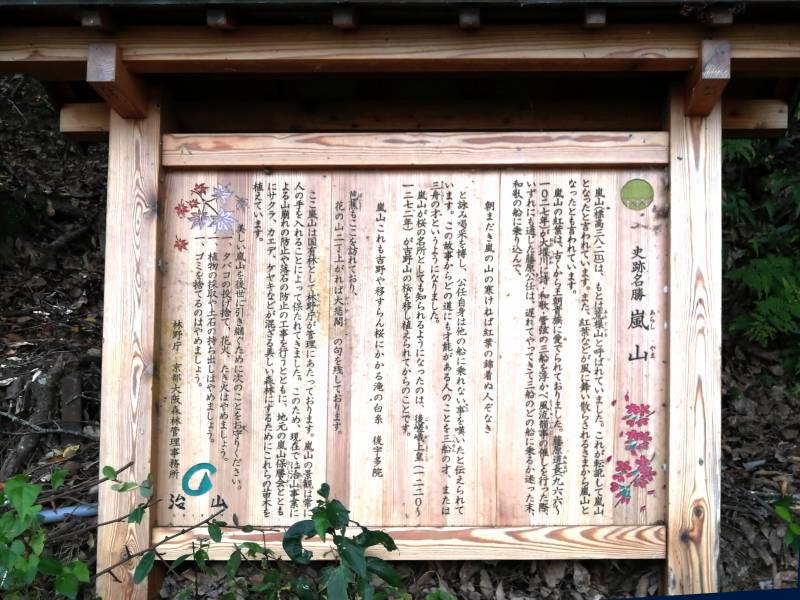 史跡名勝 嵐山
あらし やま
嵐山(標高三八二m)は、もとは
と呼ばれていました。これが転訛して嵐山
となったと言われています。また、紅葉などが風で舞い散らされるさまから嵐山と
なったとも言われています。
嵐山の紅葉は、古くから王朝貴族に愛でられておりました。藤原道長(九六六〜
一〇二七年)が大堰川に詩・和歌・管弦の三船を浮かべ風流韻事の催しを行った際、
いずれにも通じた藤原公任は、遅れてやってきて三船のどの船に乗るか迷った末、
和歌の船に乗り込んで、
朝まだき嵐の山の寒ければ紅葉の錦着ぬ人ぞなき
と詠み喝采を博し、公任自身は他の船に乗れない事を嘆いたと伝えられて
います。この故事からどの道にも才能がある人のことを三船の才、または
三舟の才というようになりました。
嵐山が桜の名所としても知られるようになったのは、後嵯峨上皇(一二二〇〜
一二七二年)が吉野山の桜を移し植えられてからのことです。
嵐山これも吉野や移すらん桜にかかる滝の白糸 後宇多院
芭蕉もここを訪ねており、
花の山二丁上がれば大悲閣 の句を残しております。
ここ嵐山は国有林として林野庁が管理にあたっております。嵐山の景観は常に
人の手を入れることによって保たれてきました。このため、現在では治山事業に
よる山崩れの防止や落石の防止の工事を行うとともに、地元の嵐山保勝会ととも
にサクラ、カエデ、ケヤキなどが混ざる美しい森林にするためにこれらの苗木を
植えています。
美しい嵐山を後世に引き継ぐために次のことをお守りください。
一、タバコの投げ捨て、花火、たき火はやめましょう。
一、植物の採取や土石の持ち出しはやめましょう。
一、ゴミを捨てるのはやめましょう。
林野庁 京都大阪森林管理事務所
治山